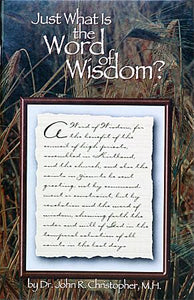 Just What Is
the
Word
of
Wisdom?
A Word of Wisdom, for
the benefit of the
council of high priests,
assembled in Kirtland,
and the church, and also the
saints in Zion; to be sent
greeting, not by command-
ment or constraint, but by
revelation and the word of
wisdom, showing forth the
order and will of God in the
temporal salvation of all
saints in the last days
by Dr. John R. Christopher, M.H.